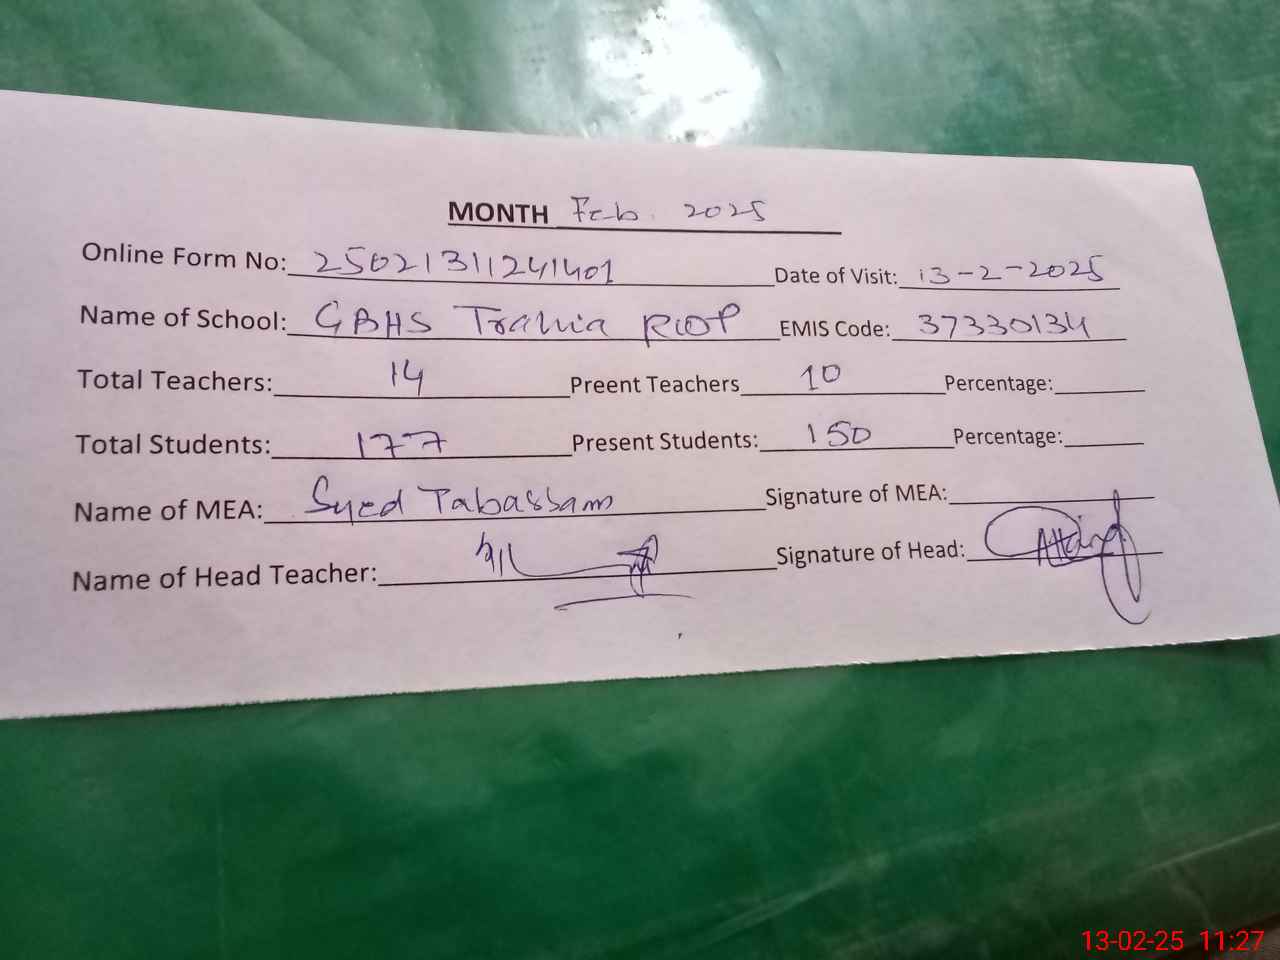 MONTH Feb. 2025
Online Form No: 25021311241401 Date of Visit: 13-2-2025
Name of School: GBHS Trahia RWP EMIS Code: 37330134
Total Teachers: 14 Preent Teachers 10 Percentage:
Total Students: 177 Present Students: 150 Percentage:
Name of MEA: Syed Tabassam Signature of MEA:
Name of Head Teacher: Signature of Head:
13-02-25 11:27